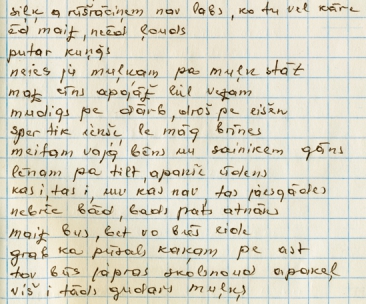 siļk a rūšrociņem nav labs, ko tu vel kāre
ēd maiz, neēd ļouds
putar kungs
neies jū muļkam pa muļk stāt
maz cīns apojāz liil vezam
mudigs pe dārb, droš pe eišen
sper tik ienše, le māg brīnes
meitam vajg bēns un sainikem gāns
lēnam pa tilt, apakše ūdens
kas i tas i, un kas nav tas jāsgādes
nebrēc bād, bads pats atnās
maiz bus, bet vo būs eide
grab ka pūsals kakam pe ast
tov būs jāpras skolmond apakeļ
viš i tāds gudars muļķs